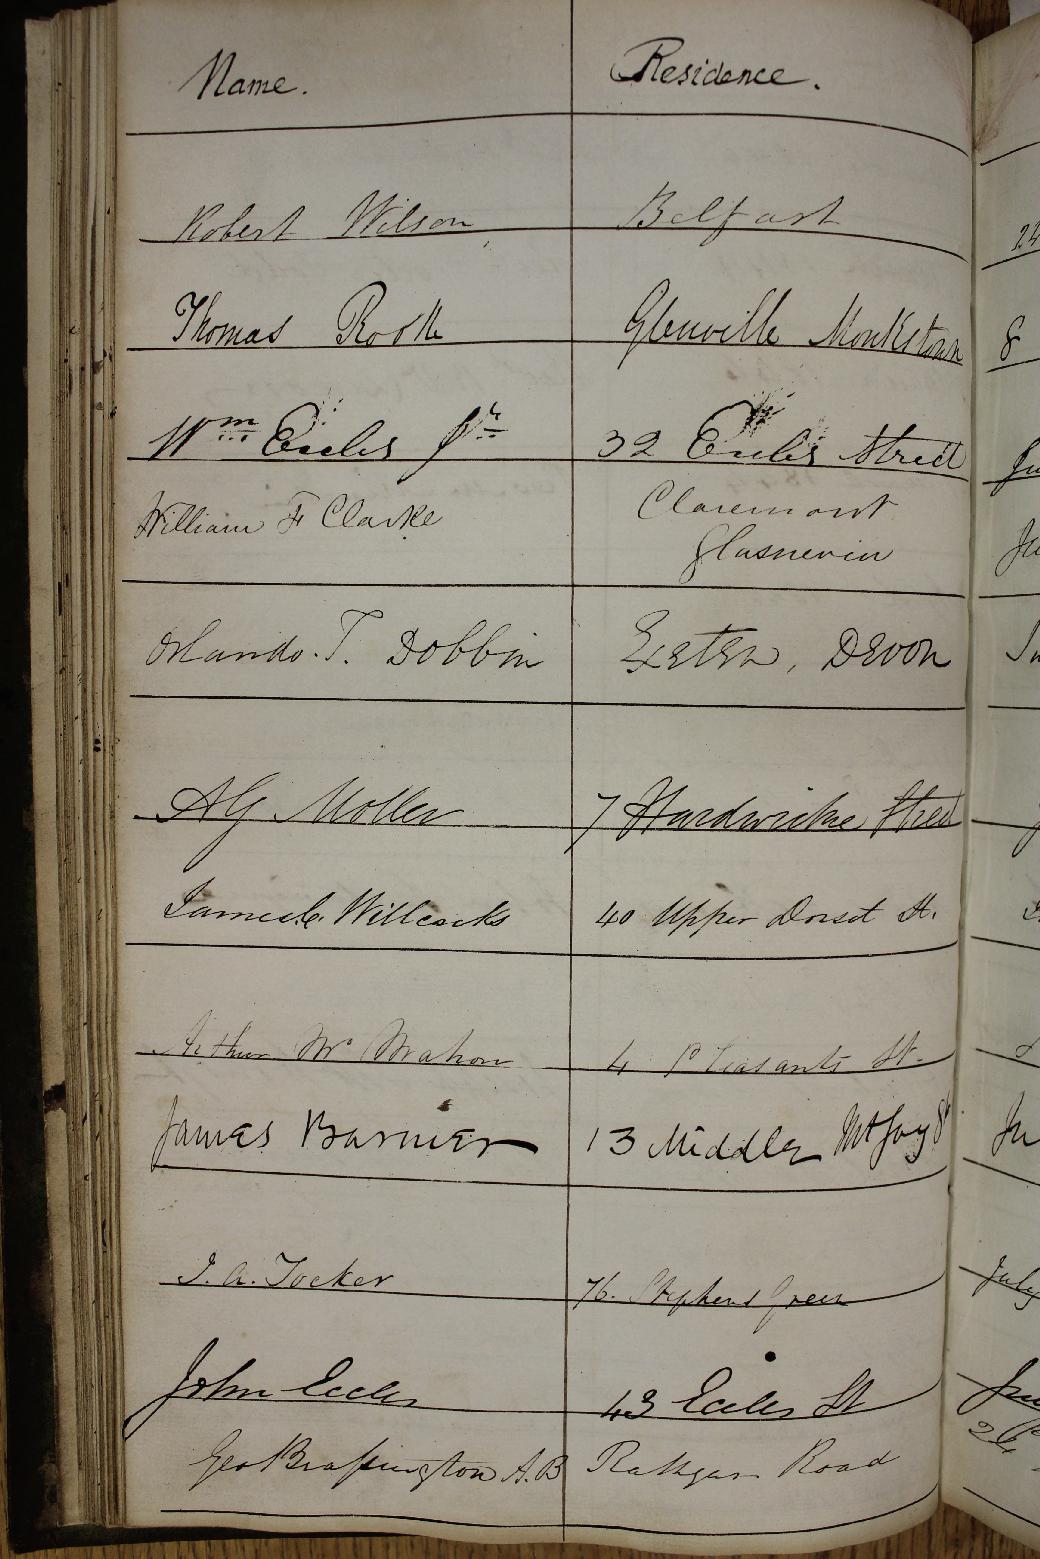 Name. Residence.
Robert Wilson Belfast
Thomas Rooke Glenville Monkstown
Wm Eccles Jr 32 Eccles Street
William F Clarke Claremont
Glasnevin
Orlando. T. Dobbin Exeter, Devon
AG Moller 7 Hardwicke Street
James C. Willcocks 40 Upper Dorset St.
Arthur Mc Mahon 4 Pleasants St.
James Barnier 13 Middle Mt Joy St
J. A. Tocker 76. Stephens Green
John Eccles 43 Eccles St
Geo Brassington A.B Rathgar Road
24
8
July
26